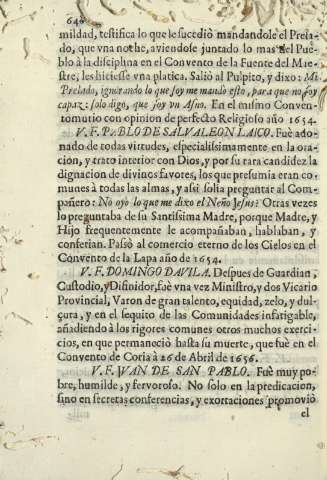 640
mildad, testifica lo que le sucediò mandandole el Prela-
do, que vna noche, aviendose juntado lo mas del Pue-
blo à la disciplina en el Convento de la Fuente del Mae-
stre, les hiciesse vna platica. Saliò al Pulpito, y dixo: Mi
Prelado, ignorando lo que soy me mandò esto, para que no soy
capaz: solo digo, que soy vn Asno. En el mismo Conven-
to murio con opinion de perfecto Religioso año 1654.
V. F. PABLO DE SALVALEON LAICO. Fuè ador-
nado de todas virtudes, especialissimamente en la ora-
cion, y trato interior con Dios, y por su rara candidez la
dignacion de divinos favores, los que presumia eran co-
munes à todas las almas, y assi solia preguntar al Com-
pañero: No oyò lo que me dixo el Neño Jesus? Otras veces
lo preguntaba de su Santissima Madre, porque Madre, y
Hijo frequentemente le acompañaban, hablaban, y
conferian. Passò al comercio eterno de los Cielos en el
Convento de la Lapa año de 1654.
V. F. DOMINGO DAVILA. Despues de Guardian,
Custodio, y Difinidor, fuè vna vez Ministro, y dos Vicario
Provincial, Varon de gran talento, equidad, zelo, y dul-
çura, y en el sequito de las Comunidades infatigable,
añadiendo à los rigores comunes otros muchos exerci-
cios, en que permaneciò hasta su muerte, que fuè en el
Convento de Coria à 26 de Abril de 1656.
V. F. IVAN DE SAN PABLO. Fuè muy po-
bre, humilde, y fervoroso. No solo en la predicacion,
sino en secretas conferencias, y exortaciones promoviò
el